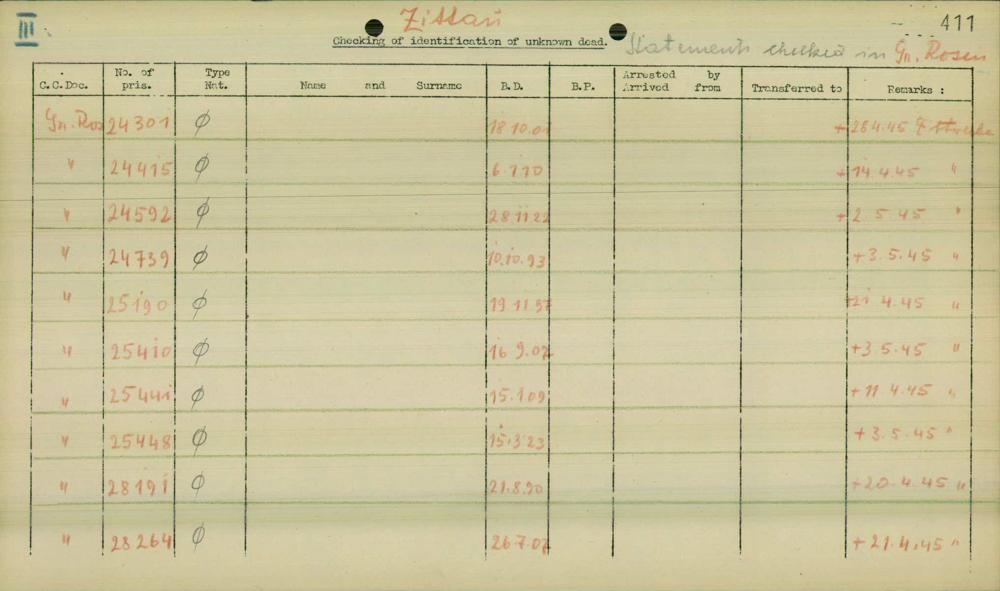 III
Zittau
411
Checking of identification of unknown dead. Statements checked in Gr. Rosen
C.C.Doc. No. of pris. Type Nat. Name and Surname B.D. B.P. Arrested by Arrived from Transferred to Remarks :
Gr. Ros 24301 ∅ 18.10.01 + 28 4.45
" 24415 ∅ + 14.4.45 "
" 24592 ∅ 28.11.22 + 2.5.45 "
" 24739 ∅ 10.10.93 +3.5.45 "
" 25190 ∅ +21 4.45 "
" 25410 ∅ 16 9.07 +3.5.45 "
" 25441 ∅ 15.1.09 +11 4.45 "
" 25448 ∅ 15.3.23 +3.5.45 "
" 28191 ∅ 21.8.90 +20.4.45 "
" 28264 ∅ 26.7.07 + 21.4.45 "